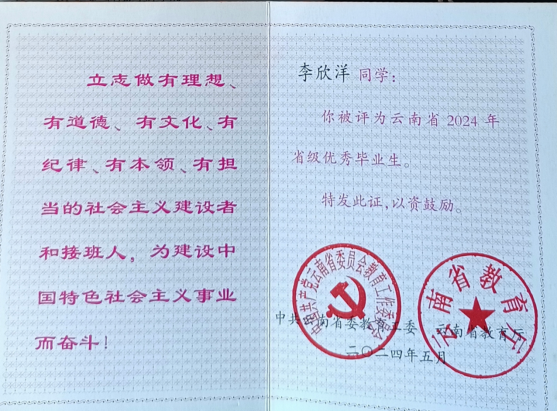 立志做有理想、
有道德、有文化、有
纪律、有本领、有担
当的社会主义建设者
和接班人，为建设中
国特色社会主义事业
而奋斗！
李欣洋 同学：
你被评为云南省 2024 年
省级优秀毕业生。
特发此证，以资鼓励。
中国共产党云南省委员会教育工作委员会
云南省教育厅
中共云南省委教育工委 云南省教育厅
二〇二四年五月